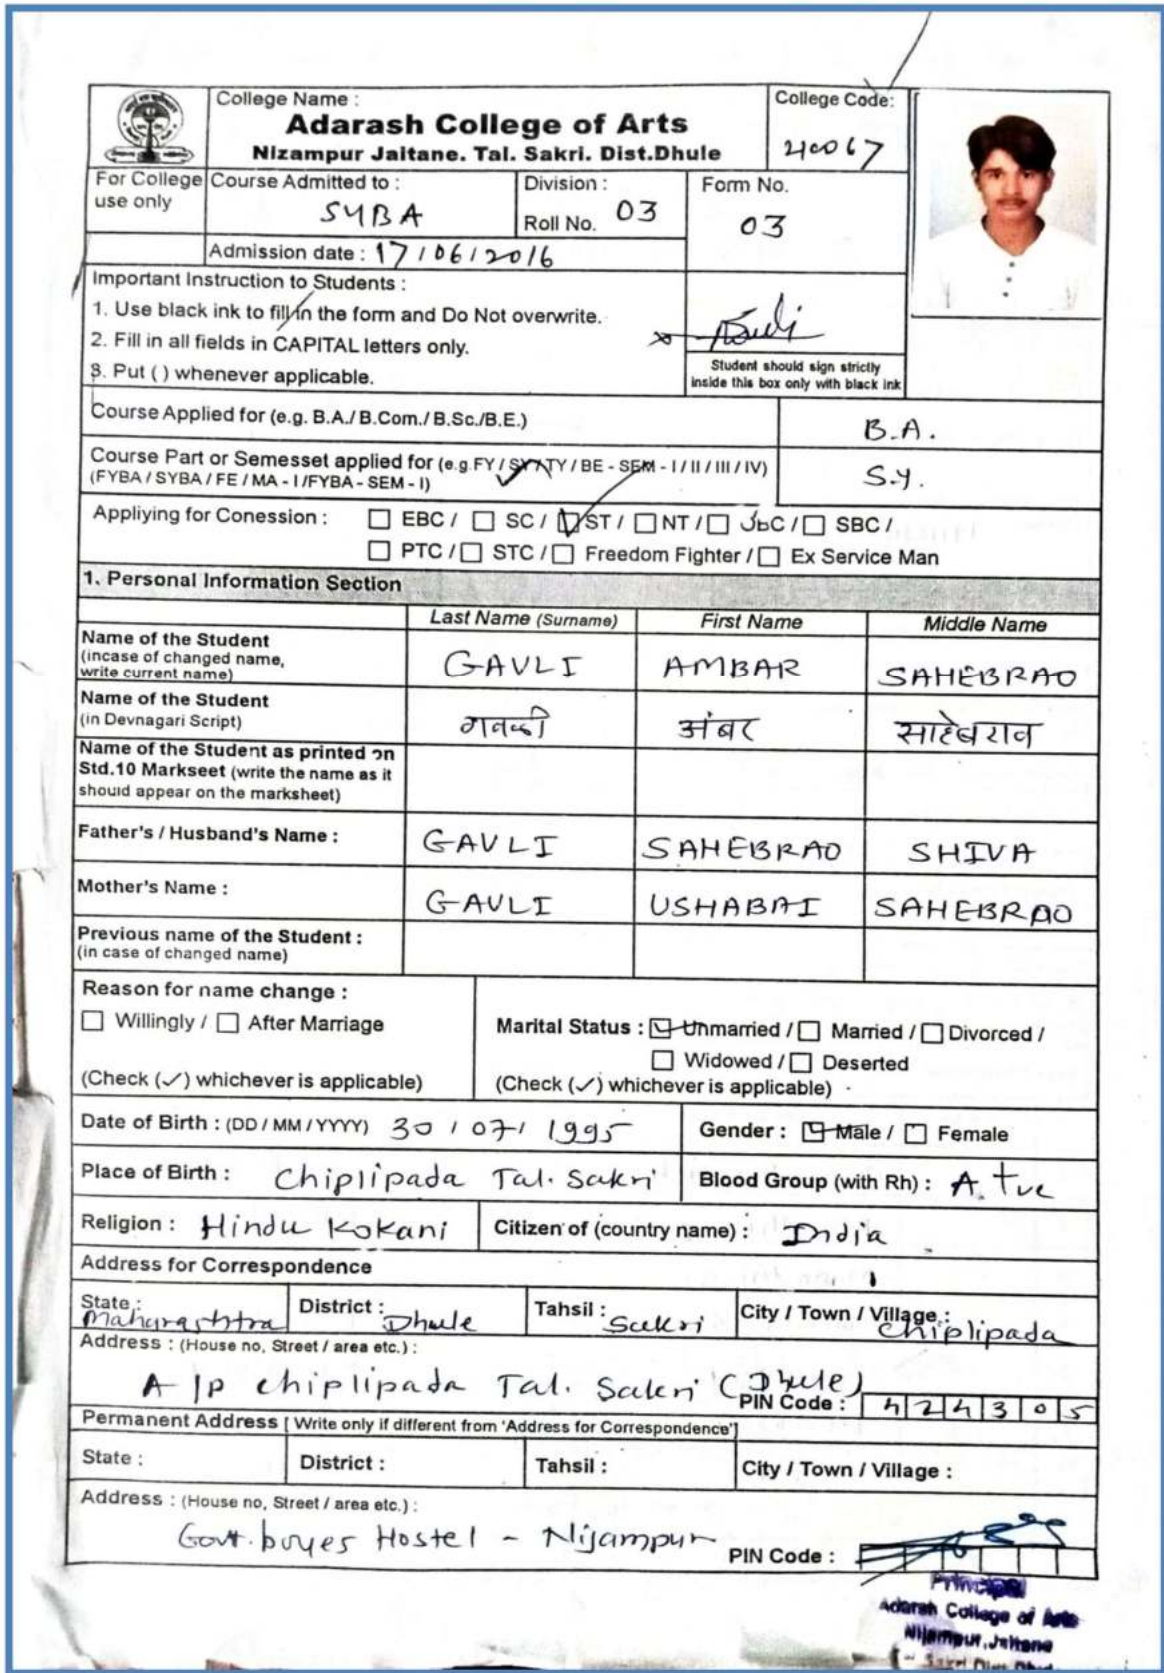 College Name :
Adarash College of Arts
Nizampur Jaitane. Tal. Sakri. Dist.Dhule
College Code:
40067
For College use only
Course Admitted to :
SYBA
Division :
Roll No. 03
Form No.
03
Admission date : 17/06/2016
Important Instruction to Students :
1. Use black ink to fill in the form and Do Not overwrite.
2. Fill in all fields in CAPITAL letters only.
3. Put ( ) whenever applicable.
Student should sign strictly
inside this box only with black ink
Course Applied for (e.g. B.A./ B.Com./ B.Sc./B.E.)
B.A.
Course Part or Semesset applied for (e.g.FY / SY / TY / BE - SEM - I / II / III / IV)
(FYBA / SYBA / FE / MA - I /FYBA - SEM - I)
S.Y.
Appliying for Conession : EBC / SC / ST / NT / SBC /
PTC / STC / Freedom Fighter / Ex Service Man
1. Personal Information Section
Last Name (Surname) First Name Middle Name
Name of the Student
(incase of changed name,
write current name)
GAVLI AMBAR SAHEBRAO
Name of the Student
(in Devnagari Script)
गवळी अंबर साहेबराव
Name of the Student as printed on
Std.10 Markseet (write the name as it
should appear on the marksheet)
Father's / Husband's Name : GAVLI SAHEBRAO SHIVA
Mother's Name : GAVLI USHABAI SAHEBRAO
Previous name of the Student :
(in case of changed name)
Reason for name change :
Willingly / After Marriage
(Check (✓) whichever is applicable)
Marital Status : Unmarried / Married / Divorced /
Widowed / Deserted
(Check (✓) whichever is applicable)
Date of Birth : (DD / MM / YYYY) 30 / 07 / 1995
Gender : Male / Female
Place of Birth : Chiplipada Tal. Sakri
Blood Group (with Rh) : A. +ve
Religion : Hindu Kokani
Citizen of (country name) : India
Address for Correspondence
State : Maharashtra
District : Dhule
Tahsil : Sakri
City / Town / Village : Chiplipada
Address : (House no, Street / area etc.) :
A/p chiplipada Tal. Sakri (Dhule)
PIN Code : 424305
Permanent Address [ Write only if different from 'Address for Correspondence']
State :
District :
Tahsil :
City / Town / Village :
Address : (House no, Street / area etc.) :
Govt. boyes Hostel - Nijampur
PIN Code :
Principal
Adarsh College of Arts
Nijampur, Jaitane